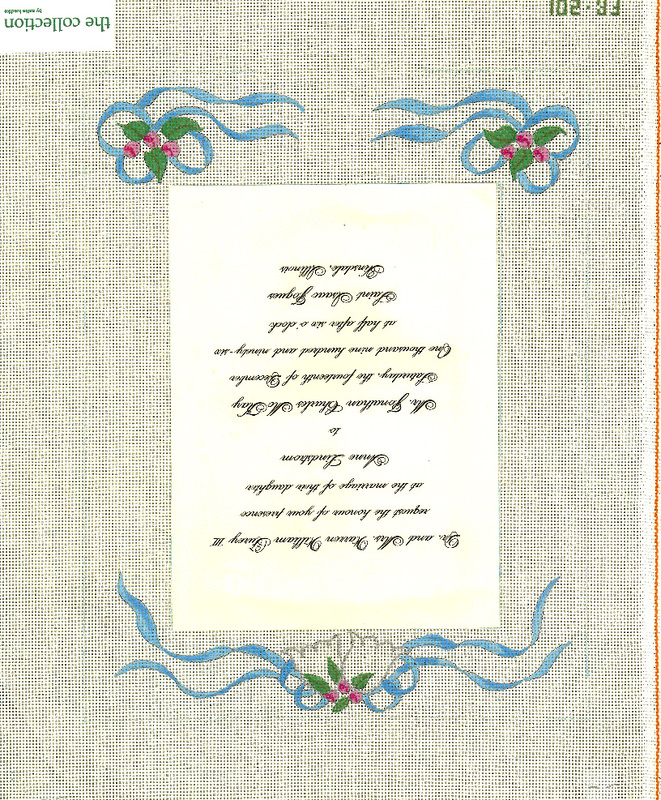 Dr. and Mrs. Warren William Furey III
request the honour of your presence
at the marriage of their daughter
Anne Lindstrom
to
Mr. Jonathan Charles Mc Kay
Saturday, the fourteenth of December
One thousand nine hundred and ninety-six
at half after six o'clock
Saint Isaac Jogues
Hinsdale, Illinois
FR-201
the collection
by